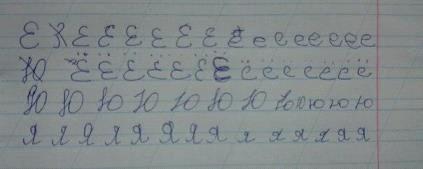 Е Х Е Е Е Е Е Е Е е е е е е е
Ю Ё Ё Ё Ё Ё Ё ё ё ё ё ё ё
Ю Ю Ю Ю Ю Ю Ю Ю ю ю ю ю ю
Я Я Я Я Я Я Я Я я я я я я